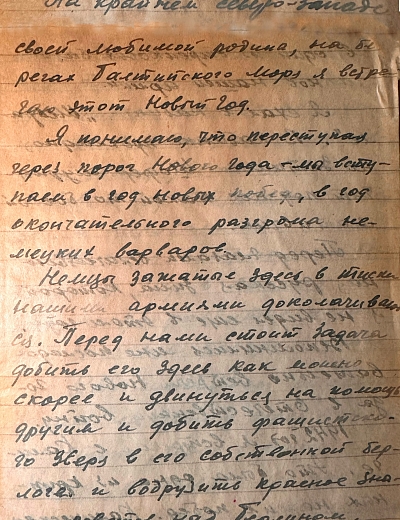 На крайнем северо-западе
своей любимой родины, на бе
регах Балтийского моря я встре
чаю этот Новый Год.
Я понимаю, что переступая
через порог Нового года – мы всту-
паем в год новых побед, в год
окончательного разгрома не-
мецких варваров.
Немцы зажатые здесь в тиски
нашими армиями доколачиваю
ся. Перед нами стоит задача
добить его здесь как можно
скорее и двинуться на помощь
другим и добить фашистско
го зверя в его собственной бер-
логе и водрузить красное зна-
над Берлином